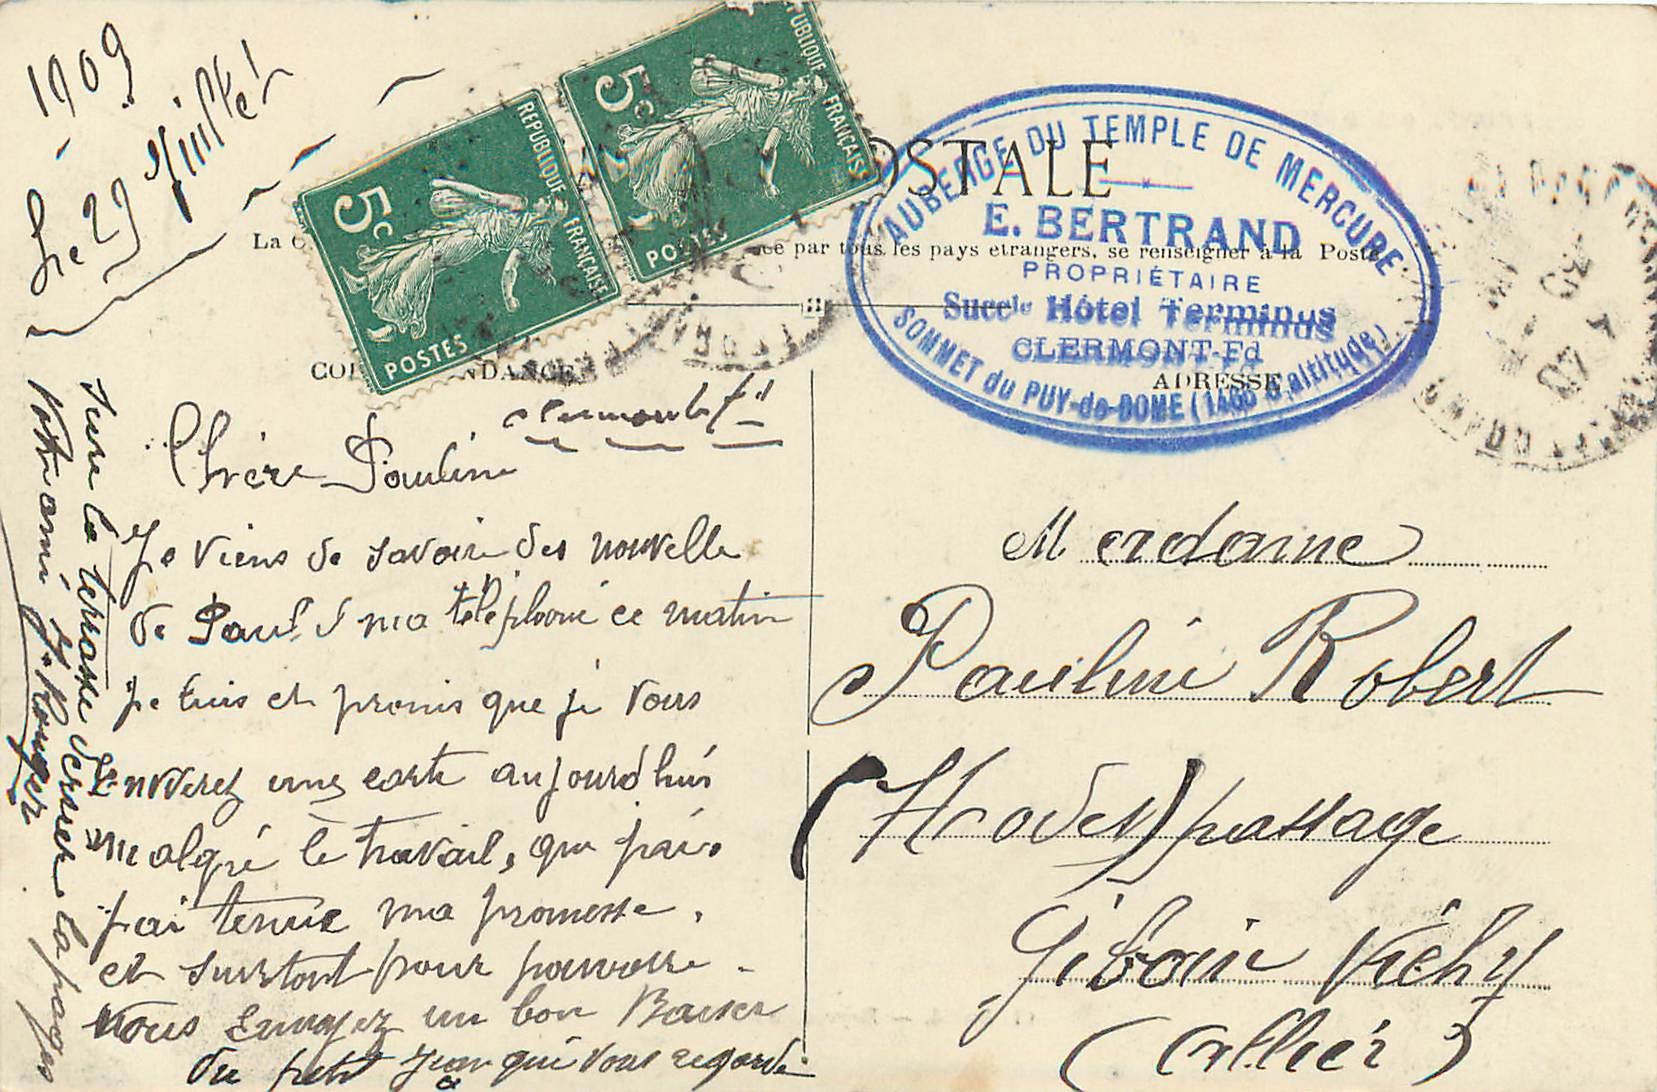 1909
Le 29 Juillet
RÉPUBLIQUE FRANÇAISE
5c
POSTES
RÉPUBLIQUE FRANÇAISE
5c
POSTES
POSTALE
AUBERGE DU TEMPLE DE MERCURE
E. BERTRAND
PROPRIÉTAIRE
Succle Hôtel Terminus
CLERMONT-Fd
SOMMET du PUY-de-DOME (1465 d'altitude)
La C
par tous les pays étrangers, se renseigner à la Poste
CORRESPONDANCE
ADRESSE
clermont fd
Chère Pauline
Je viens de savoir des nouvelle
de Paul, I ma téléphoné ce matin
Je luis et promis que je vous
Enverez une carte aujourd'huis
malgré le travail, que j'ai.
j'ai tenue ma promesse.
et surtout pour pauvoire -
vous Envoyez un bon Baiser
du petit Jean qui vous regarde
sure la terrasse derrier la pages
Votre ami J. Rouger
Merdame
Pauline Robert
(Modes) passage
Giboin Vichy
(Allier)